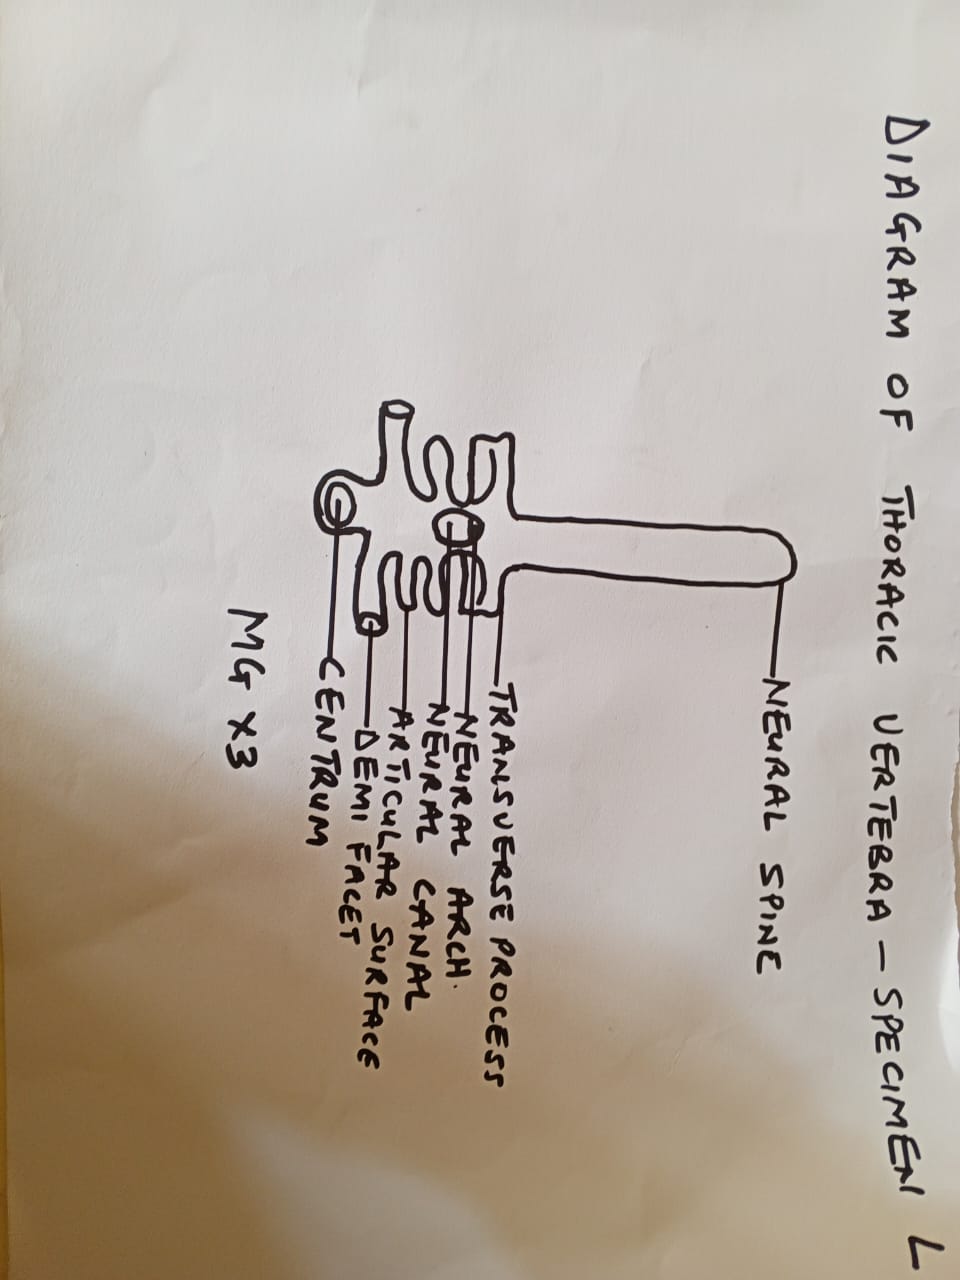 DIAGRAM OF THORACIC VERTEBRA - SPECIMEN L
NEURAL SPINE
TRANSVERSE PROCESS
NEURAL ARCH.
NEURAL CANAL
ARTICULAR SURFACE
DEMI FACET
CENTRUM
MG X3